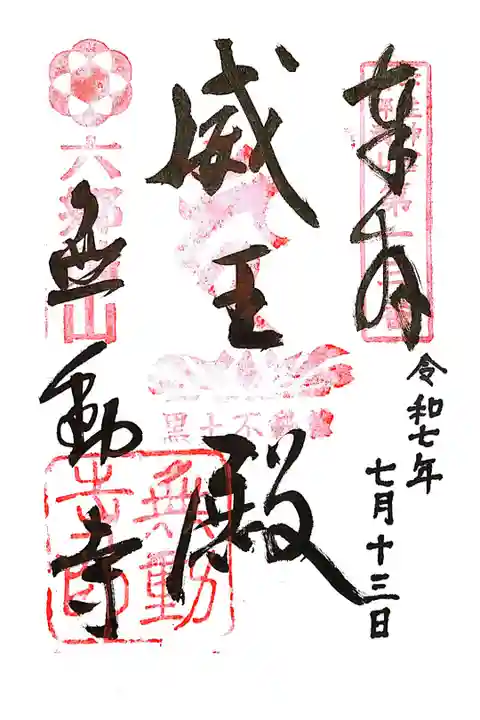 奉拝
令和七年
七月十三日
威王殿
無動寺
六郷満山
黒土不動
無動寺印